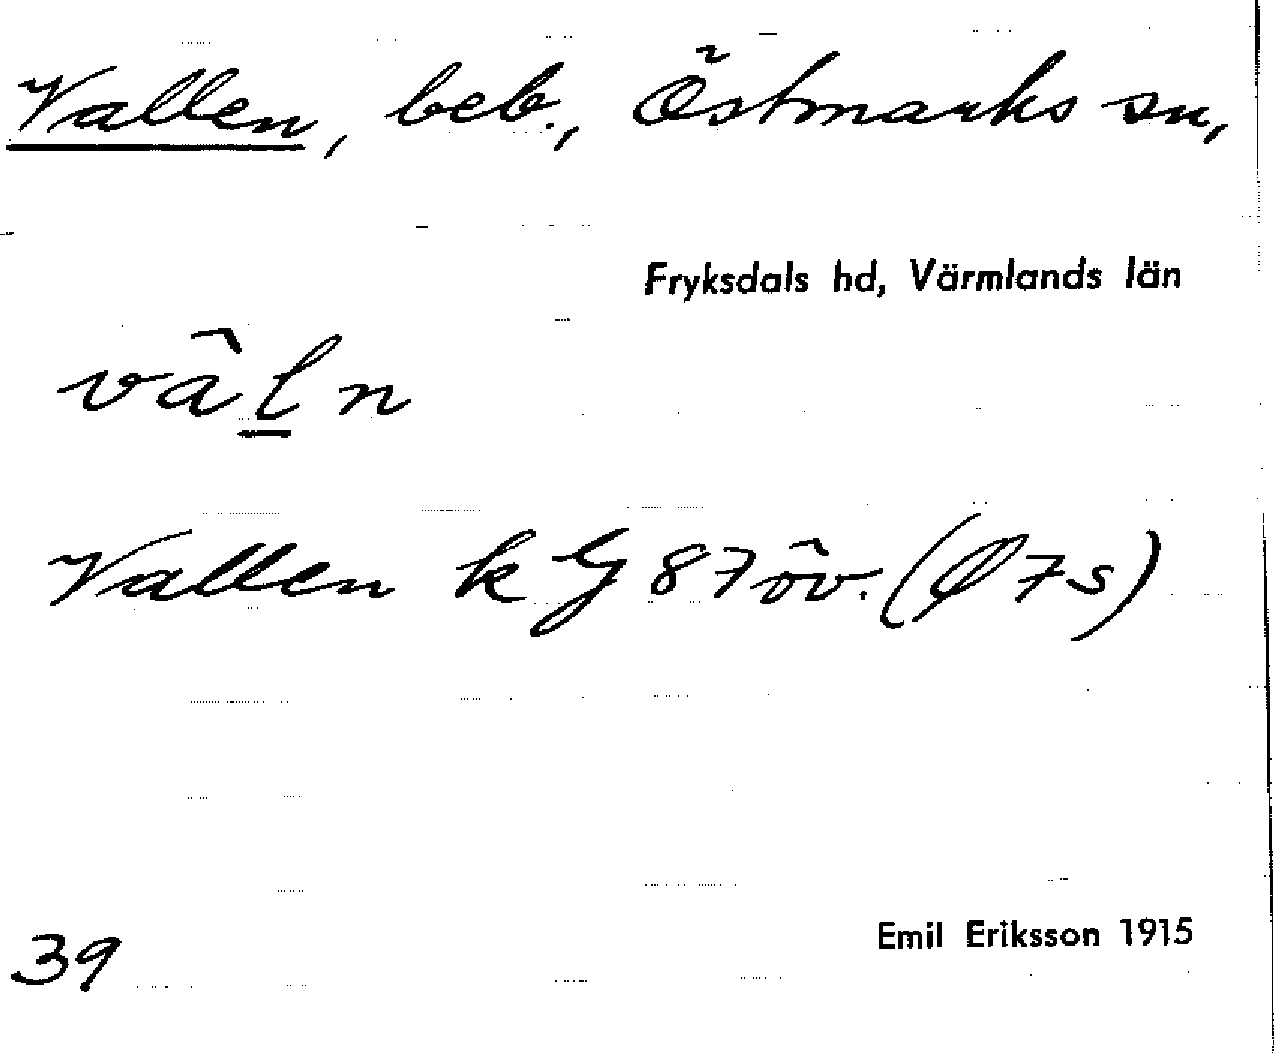 Vallen, beb., Östmarks sn,
Fryksdals hd, Värmlands län
vâl̲n
Vallen k G 87 öv. (Ø 7 s)
39
Emil Eriksson 1915